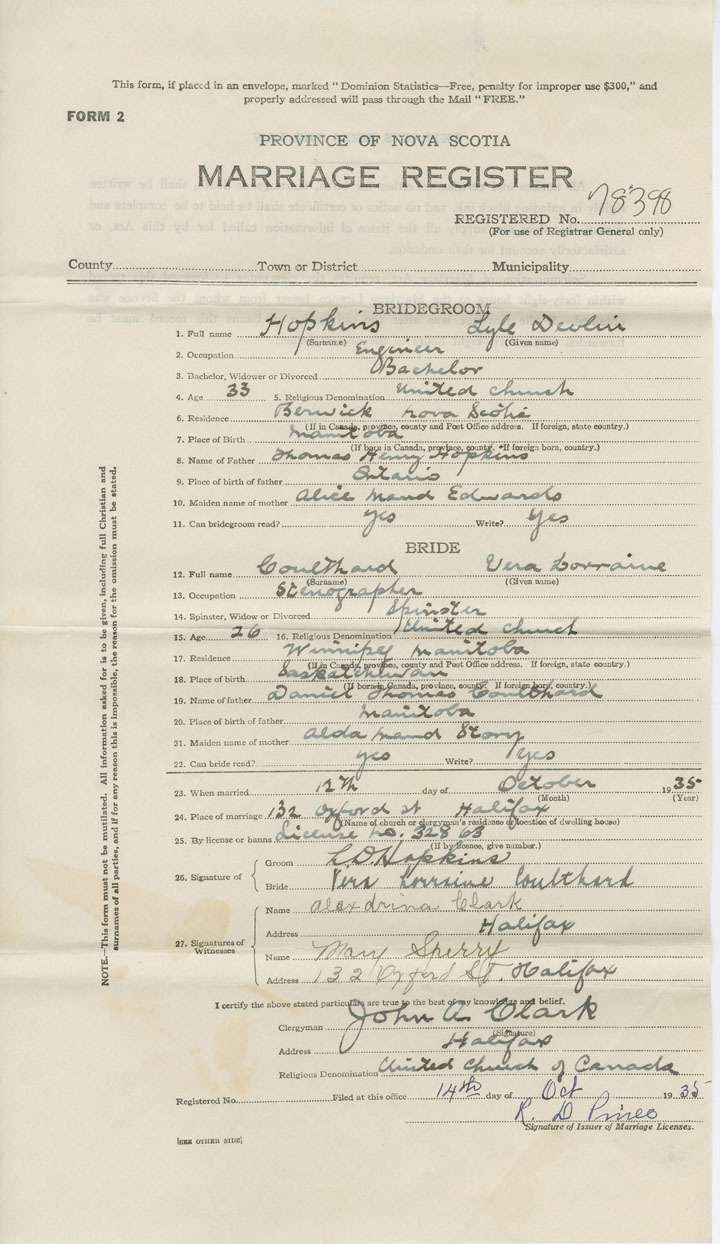 This form, if placed in an envelope, marked "Dominion Statistics—Free, penalty for improper use $300," and
properly addressed will pass through the Mail "FREE."
FORM 2
PROVINCE OF NOVA SCOTIA
MARRIAGE REGISTER
REGISTERED No. 78398
(For use of Registrar General only)
County Town or District Municipality
BRIDEGROOM
1. Full name Hopkins Lyle Devlin
(Surname) (Given name)
2. Occupation Engineer
3. Bachelor, Widower or Divorced Bachelor
4. Age 33 5. Religious Denomination United Church
6. Residence Berwick Nova Scotia
(If in Canada, province, county and Post Office address. If foreign, state country.)
7. Place of Birth Manitoba
(If born in Canada, province, county. If foreign born, country.)
8. Name of Father Thomas Henry Hopkins
9. Place of birth of father Ontario
10. Maiden name of mother Alice Maud Edwards
11. Can bridegroom read? Yes Write? Yes
BRIDE
12. Full name Coulthard Vera Lorraine
(Surname) (Given name)
13. Occupation Stenographer
14. Spinster, Widow or Divorced Spinster
15. Age 26 16. Religious Denomination United Church
17. Residence Winnipeg Manitoba
(If in Canada, province, county and Post Office address. If foreign, state country.)
18. Place of birth Saskatchewan
(If born in Canada, province, county. If foreign born, country.)
19. Name of father Daniel Thomas Coulthard
20. Place of birth of father Manitoba
21. Maiden name of mother Alda Maud Story
22. Can bride read? Yes Write? Yes
23. When married 12th day of October 1935
(Month) (Year)
24. Place of marriage 132 Oxford st Halifax
(Name of church or clergyman's residence or location of dwelling house)
25. By license or banns License no. 32863
(If by license, give number.)
26. Signature of Groom L.D. Hopkins
Bride Vera Lorraine Coulthard
27. Signatures of Witnesses
Name Alexdrina Clark
Address Halifax
Name Mary Sperry
Address 132 Oxford St. Halifax
I certify the above stated particulars are true to the best of my knowledge and belief.
Clergyman John A Clark
(Signature)
Address Halifax
Religious Denomination United Church of Canada
Registered No. Filed at this office 14th day of Oct 1935
R. D Pineo
Signature of Issuer of Marriage Licenses.
[SEE OTHER SIDE]
NOTE.—This form must not be mutilated. All information asked for is to be given, including full Christian and
surnames of all parties, and if for any reason this is impossible, the reason for the omission must be stated.